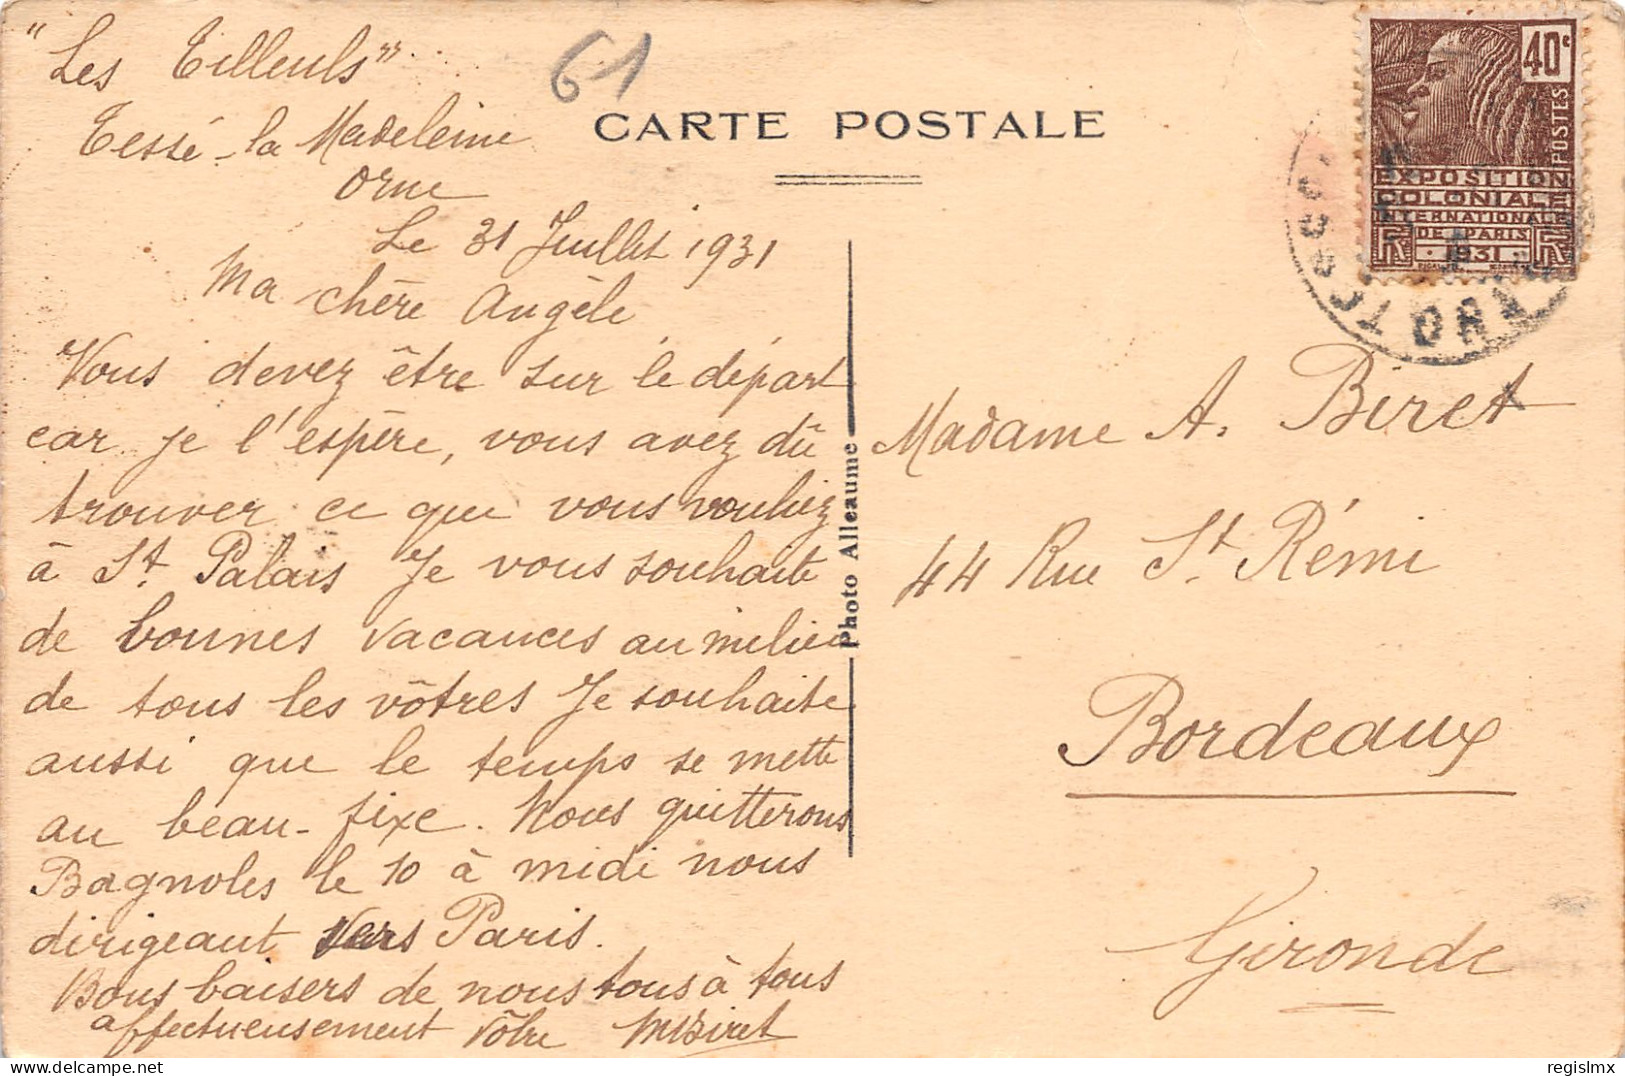 "Les Tilleuls"
Tessé-la Madeleine
Orne
Le 31 Juillet 1931
Ma chère Angèle
Vous devez être sur le départ
car je l'espère, vous avez dû
trouver ce que vous vouliez
à St Palais Je vous souhaite
de bonnes vacances au milieu
de tous les vôtres Je souhaite
aussi que le temps se mette
au beau-fixe. Nous quitterons
Bagnoles le 10 à midi nous
dirigeant vers Paris.
Bons baisers de nous tous à tous
affectueusement Vôtre MBiret
61
CARTE POSTALE
Photo Alleaume
40c
POSTES
EXPOSITION
COLONIALE
INTERNATIONALE
DE PARIS
RF · 1931 · RF
ORNE
Madame A. Biret
44 Rue St Rémi
Bordeaux
Gironde
regislmx